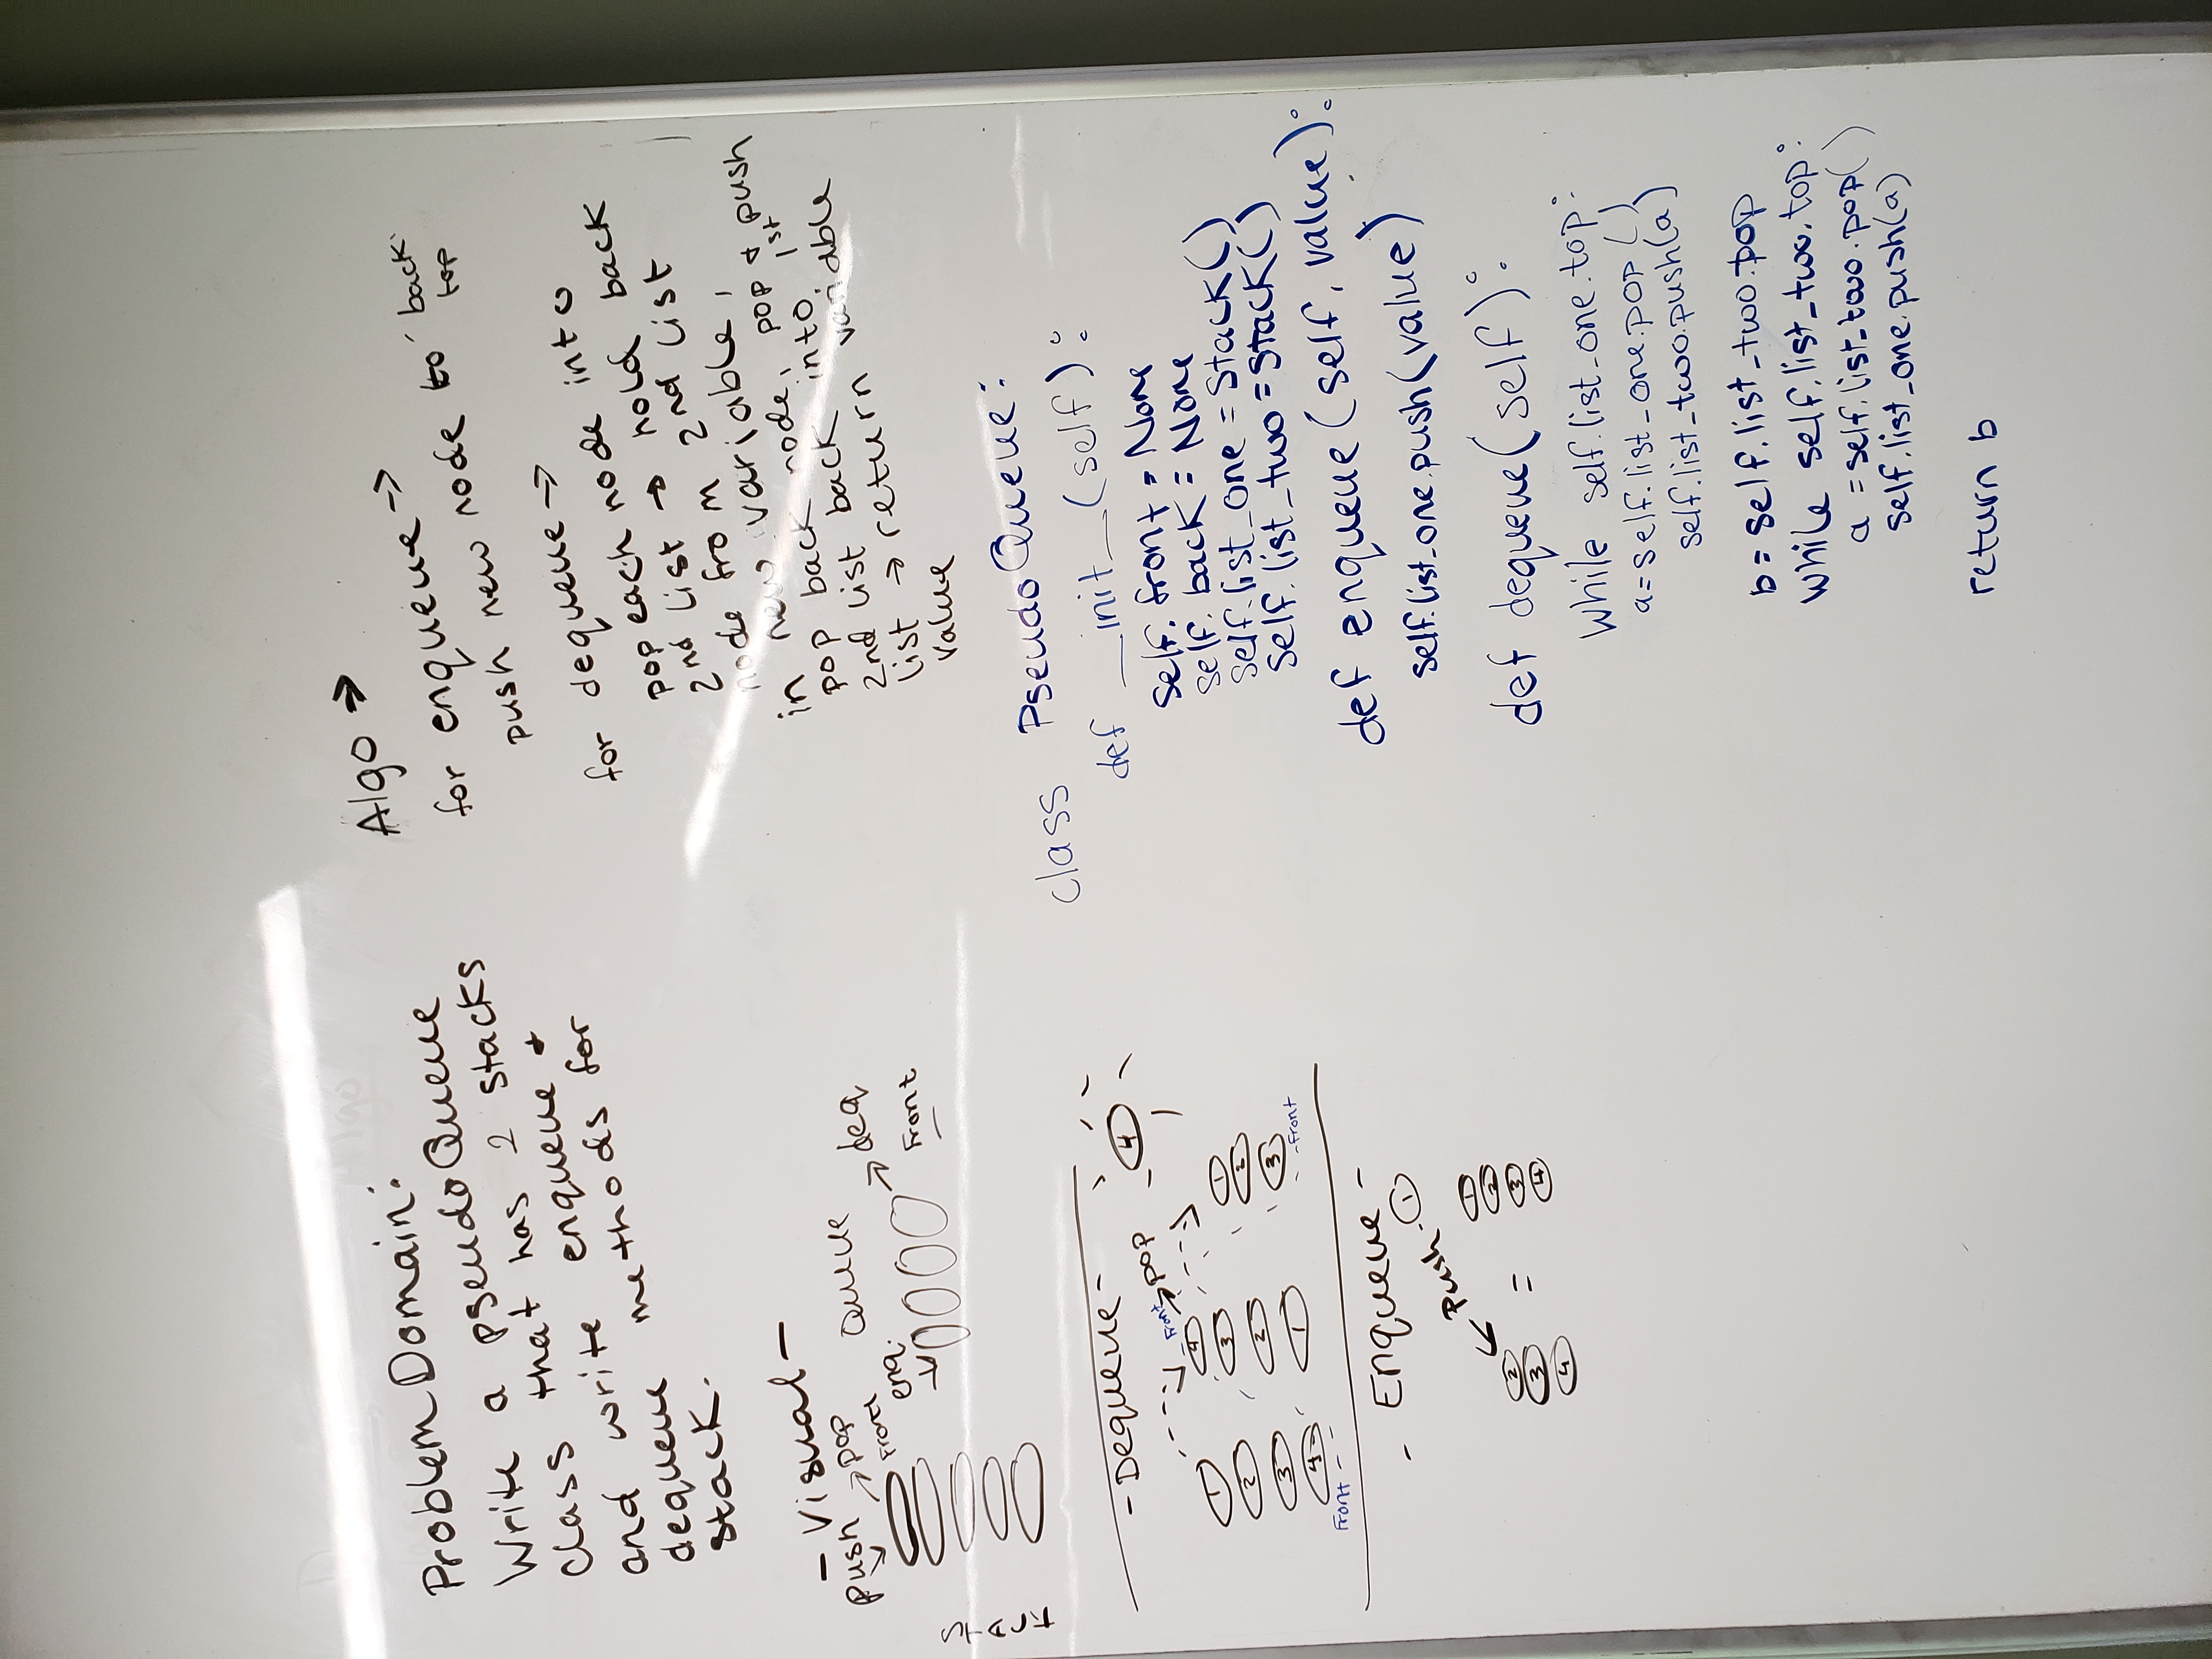 Problem Domain:
Write a pseudoQueue
class that has 2 stacks
and write enqueue +
dequeue methods for
stack.
- Visual -
push
pop
Front
Queue
enq.
deq
Front
- Dequeue -
4
Front
pop
1
2
3
4
Front
4
3
2
1
1
2
3
Front
- Enqueue -
Push
1
2
3
4
=
1
2
3
4
Algo →
for enqueue →
push new node to back
top
for dequeue →
pop each node into
2nd list → hold back
node from 2nd list
in new variable,
pop back node, pop + push
2nd list back into 1st
list → return variable
value
class PseudoQueue:
def __init__(self):
self.front = None
self.back = None
self.list_one = Stack()
self.list_two = Stack()
def enqueue(self, value):
self.list_one.push(value)
def dequeue(self):
While self.list_one.top:
a=self.list_one.pop()
self.list_two.push(a)
b= self.list_two.pop
while self.list_two.top:
a =self.list_two.pop()
self.list_one.push(a)
return b